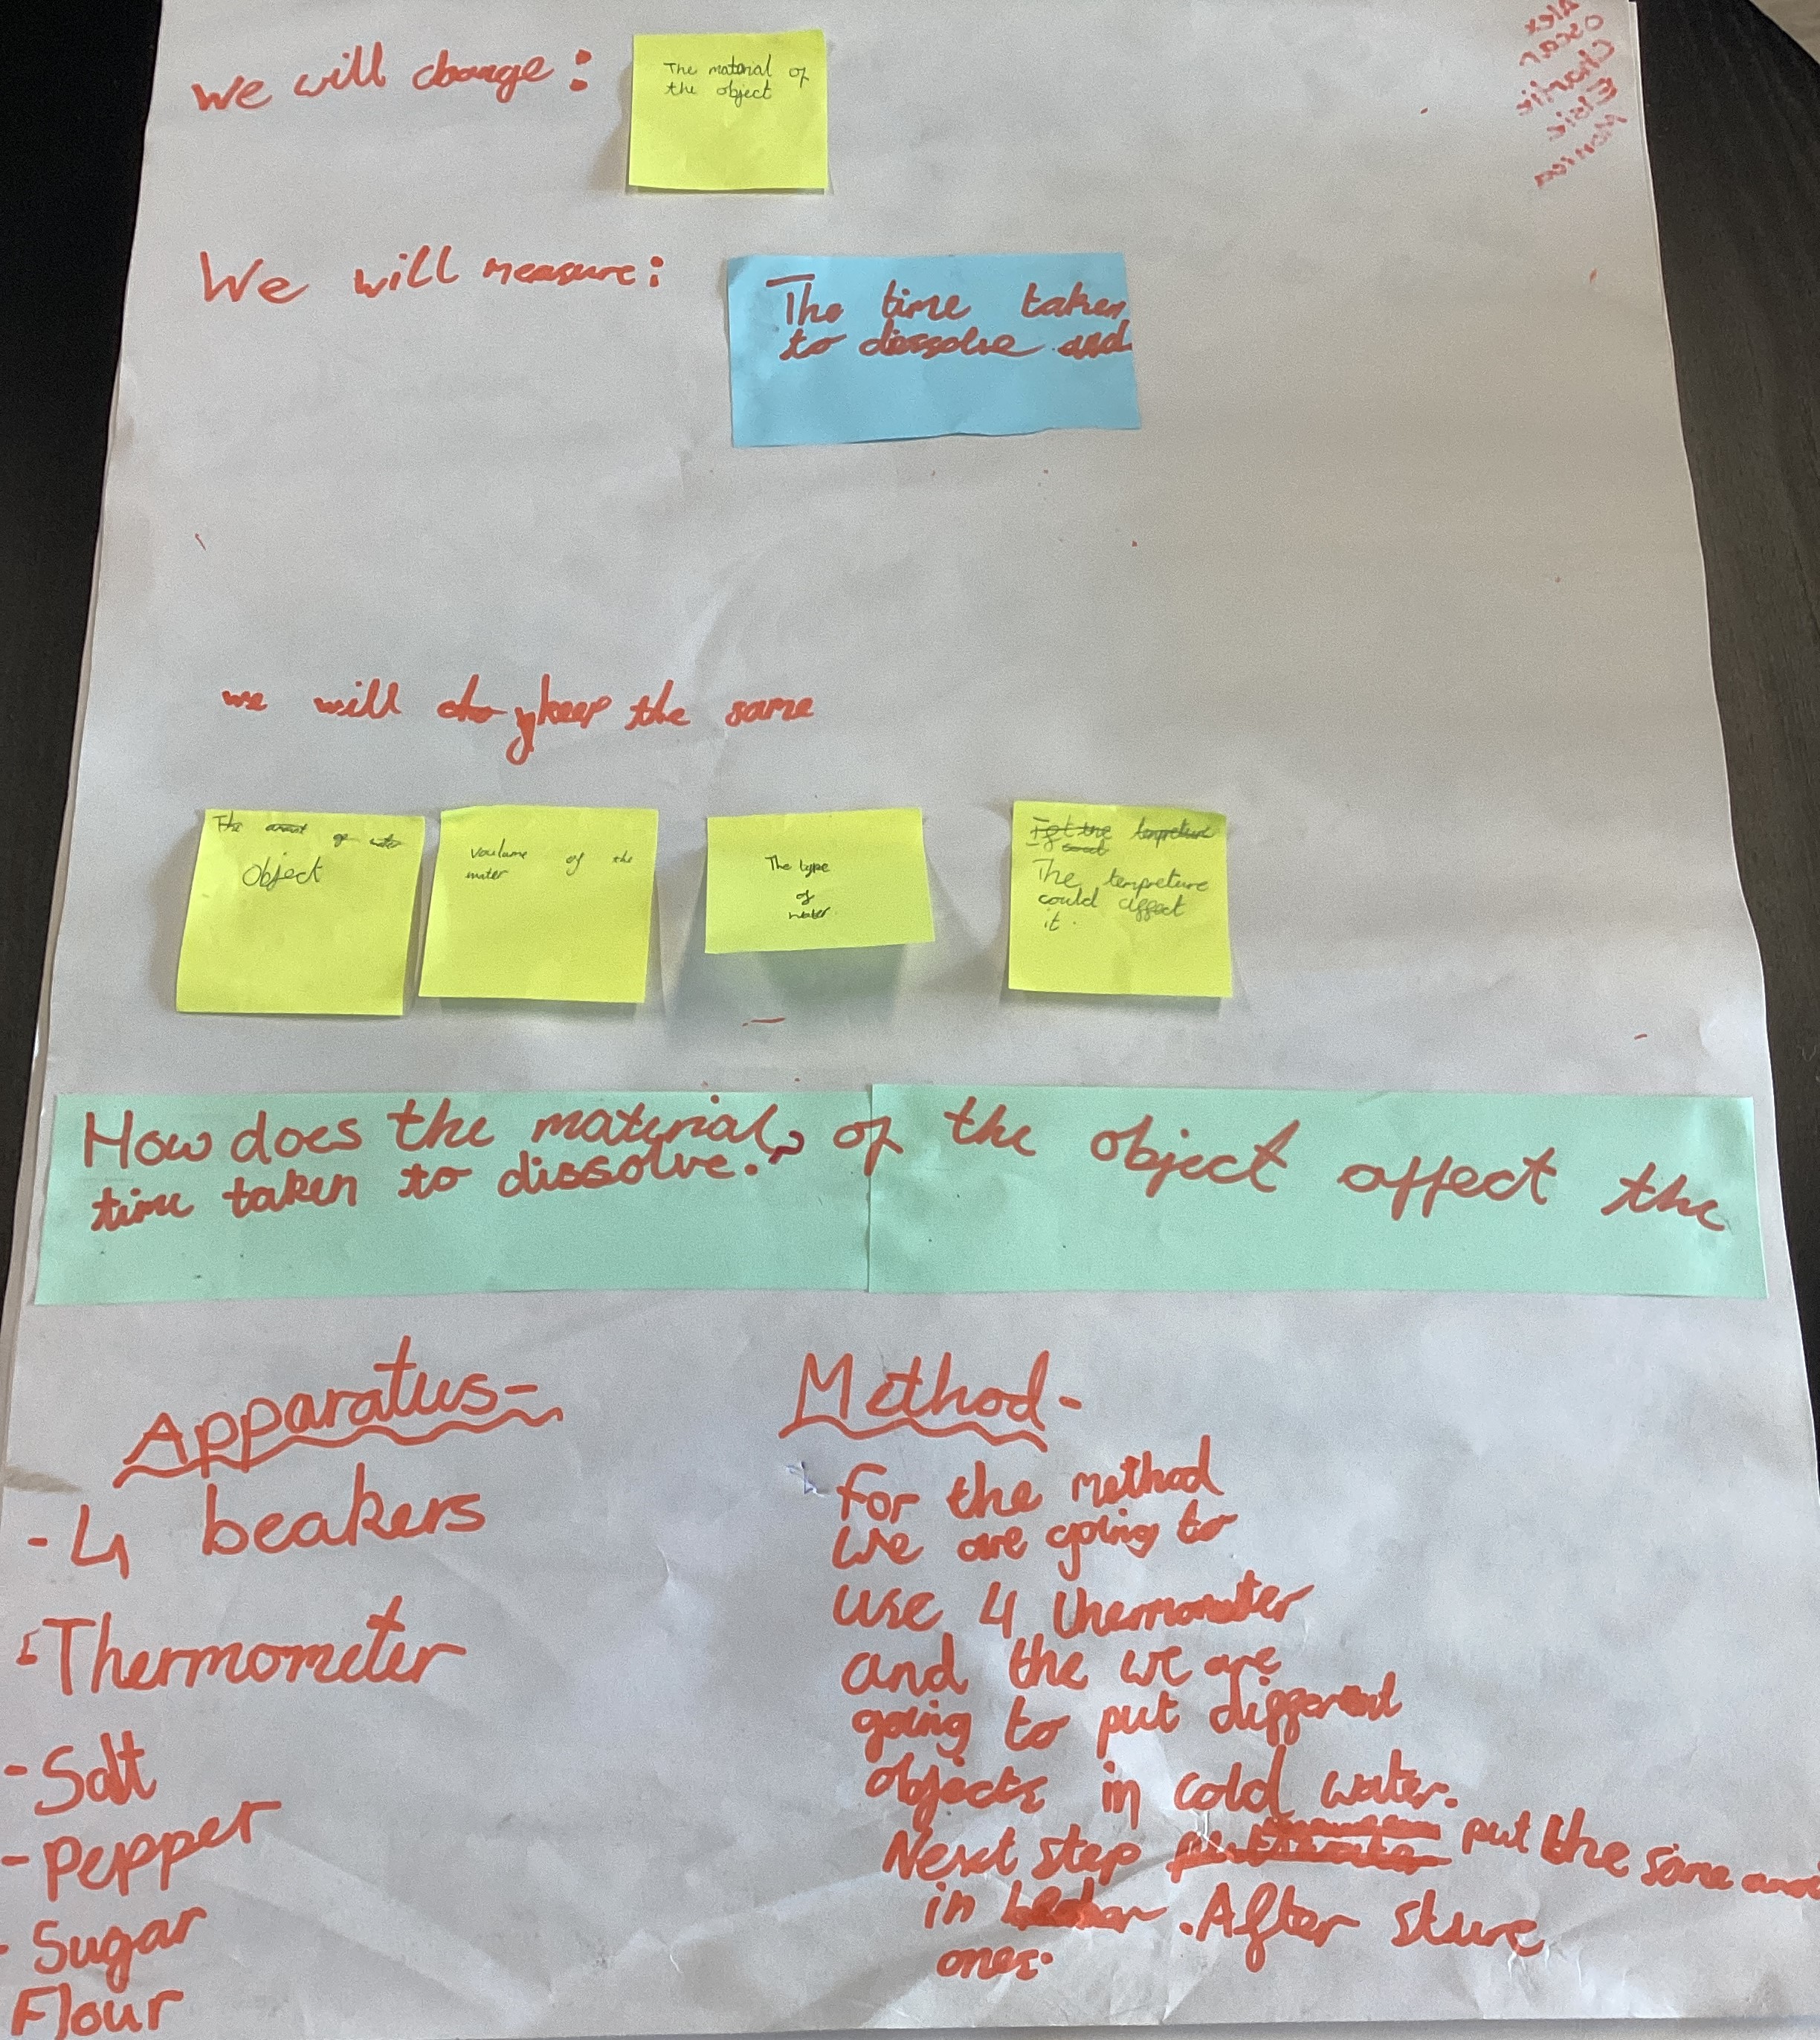 we will change:
The material of
the object
Alex
Oscar
Charlie
Elsie
We will measure:
The time taken
to dissolve and
we will keep the same
The amount of water
Object
Voulame of the
water
The type
of
water
The tempreture
could affect
it.
How does the material of the object affect the
time taken to dissolve.?
Apparatus-
- 4 beakers
- Thermometer
- Salt
- Pepper
- Sugar
Flour
Method-
For the method
we are going to
use 4 thermometer
and the we are
going to put different
objects in cold water.
Next step put the same
in . After sture
ones.